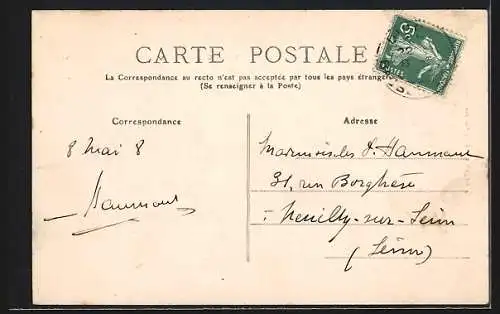 CARTE POSTALE
La Correspondance au recto n'est pas acceptée par tous les pays étrangers
(Se renseigner à la Poste)
Correspondance
Adresse
8 Mai 8
31, rue Borghèse
Neuilly-sur-Seine
(Seine)
5
POSTES